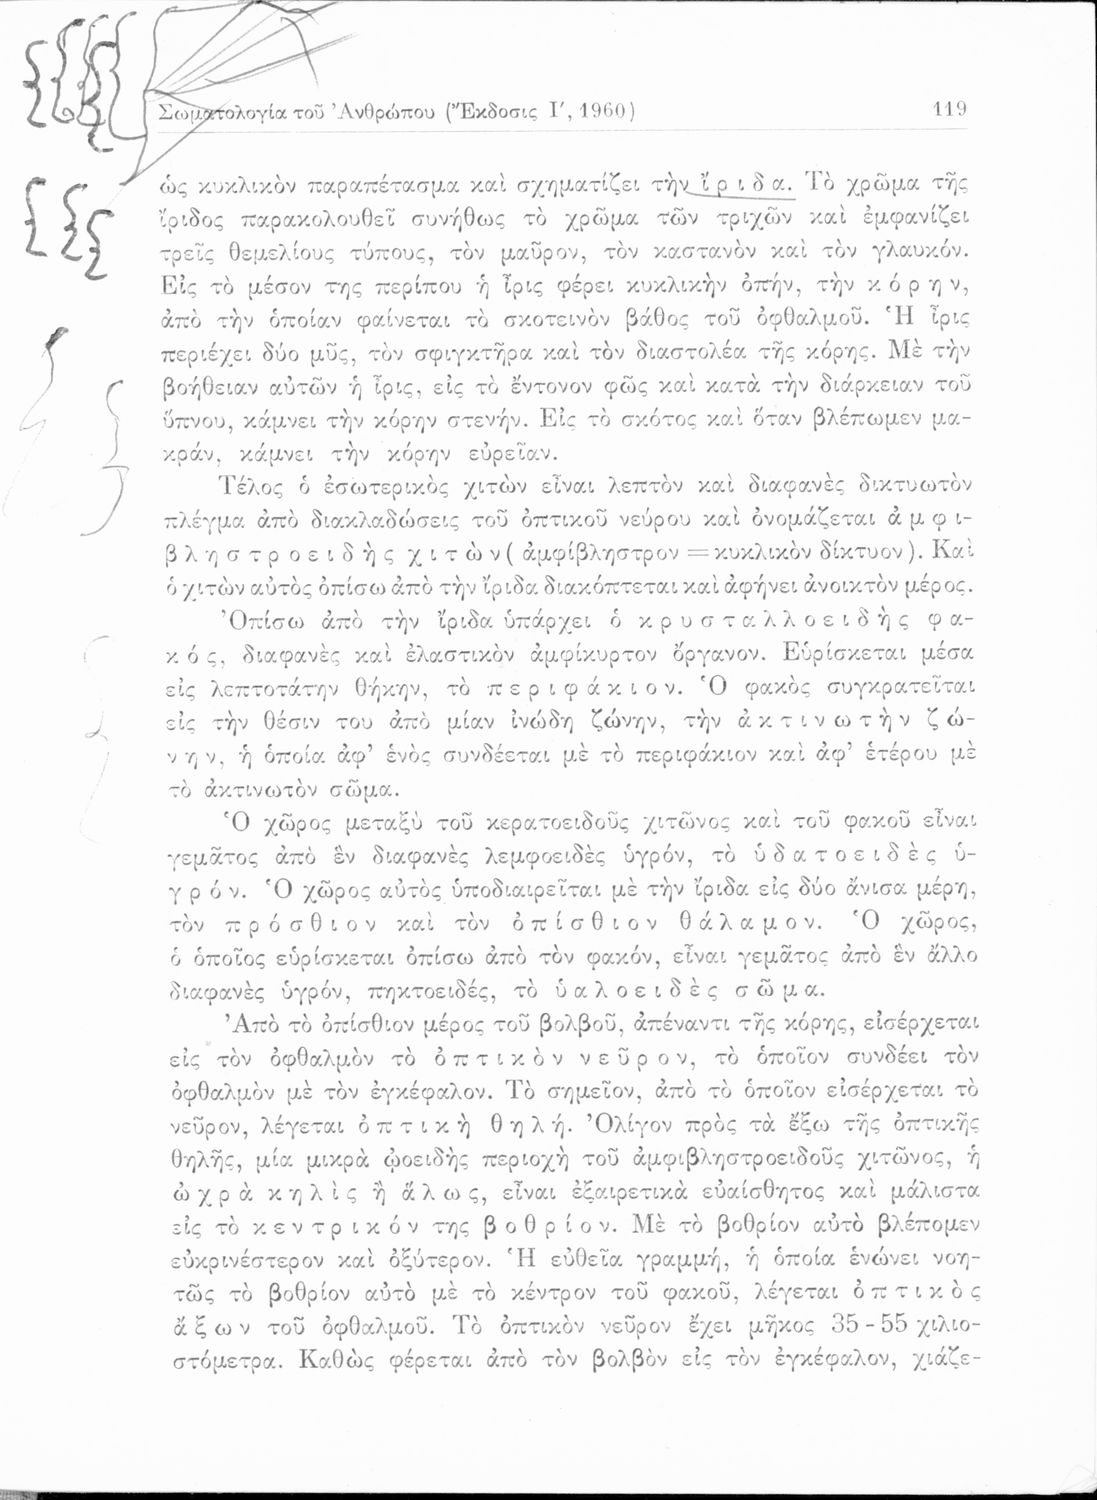 Σωματολογία τοῦ Ἀνθρώπου (Ἔκδοσις Ι΄, 1960) 119
ὡς κυκλικὸν παραπέτασμα καὶ σχηματίζει τὴν ἴριδα. Τὸ χρῶμα τῆς
ἴριδος παρακολουθεῖ συνήθως τὸ χρῶμα τῶν τριχῶν καὶ ἐμφανίζει
τρεῖς θεμελίους τύπους, τὸν μαῦρον, τὸν καστανὸν καὶ τὸν γλαυκόν.
Εἰς τὸ μέσον της περίπου ἡ ἶρις φέρει κυκλικὴν ὀπήν, τὴν κόρην,
ἀπὸ τὴν ὁποίαν φαίνεται τὸ σκοτεινὸν βάθος τοῦ ὀφθαλμοῦ. Ἡ ἶρις
περιέχει δύο μῦς, τὸν σφιγκτῆρα καὶ τὸν διαστολέα τῆς κόρης. Μὲ τὴν
βοήθειαν αὐτῶν ἡ ἶρις, εἰς τὸ ἔντονον φῶς καὶ κατὰ τὴν διάρκειαν τοῦ
ὕπνου, κάμνει τὴν κόρην στενήν. Εἰς τὸ σκότος καὶ ὅταν βλέπωμεν μα-
κράν, κάμνει τὴν κόρην εὐρεῖαν.
Τέλος ὁ ἐσωτερικὸς χιτὼν εἶναι λεπτὸν καὶ διαφανὲς δικτυωτὸν
πλέγμα ἀπὸ διακλαδώσεις τοῦ ὀπτικοῦ νεύρου καὶ ὀνομάζεται ἀμφι-
βληστροειδὴς χιτὼν (ἀμφίβληστρον = κυκλικὸν δίκτυον). Καὶ
ὁ χιτὼν αὐτὸς ὀπίσω ἀπὸ τὴν ἴριδα διακόπτεται καὶ ἀφήνει ἀνοικτὸν μέρος.
Ὀπίσω ἀπὸ τὴν ἴριδα ὑπάρχει ὁ κρυσταλλοειδὴς φα-
κός, διαφανὲς καὶ ἐλαστικὸν ἀμφίκυρτον ὄργανον. Εὑρίσκεται μέσα
εἰς λεπτοτάτην θήκην, τὸ περιφάκιον. Ὁ φακὸς συγκρατεῖται
εἰς τὴν θέσιν του ἀπὸ μίαν ἰνώδη ζώνην, τὴν ἀκτινωτὴν ζώ-
νην, ἡ ὁποία ἀφ’ ἑνὸς συνδέεται μὲ τὸ περιφάκιον καὶ ἀφ’ ἑτέρου μὲ
τὸ ἀκτινωτὸν σῶμα.
Ὁ χῶρος μεταξὺ τοῦ κερατοειδοῦς χιτῶνος καὶ τοῦ φακοῦ εἶναι
γεμᾶτος ἀπὸ ἓν διαφανὲς λεμφοειδὲς ὑγρόν, τὸ ὑδατοειδὲς ὑ-
γρόν. Ὁ χῶρος αὐτὸς ὑποδιαιρεῖται μὲ τὴν ἴριδα εἰς δύο ἄνισα μέρη,
τὸν πρόσθιον καὶ τὸν ὀπίσθιον θάλαμον. Ὁ χῶρος,
ὁ ὁποῖος εὑρίσκεται ὀπίσω ἀπὸ τὸν φακόν, εἶναι γεμᾶτος ἀπὸ ἓν ἄλλο
διαφανὲς ὑγρόν, πηκτοειδές, τὸ ὑαλοειδὲς σῶμα.
Ἀπὸ τὸ ὀπίσθιον μέρος τοῦ βολβοῦ, ἀπέναντι τῆς κόρης, εἰσέρχεται
εἰς τὸν ὀφθαλμὸν τὸ ὀπτικὸν νεῦρον, τὸ ὁποῖον συνδέει τὸν
ὀφθαλμὸν μὲ τὸν ἐγκέφαλον. Τὸ σημεῖον, ἀπὸ τὸ ὁποῖον εἰσέρχεται τὸ
νεῦρον, λέγεται ὀπτικὴ θηλή. Ὀλίγον πρὸς τὰ ἔξω τῆς ὀπτικῆς
θηλῆς, μία μικρὰ ᾠοειδὴς περιοχὴ τοῦ ἀμφιβληστροειδοῦς χιτῶνος, ἡ
ὠχρὰ κηλὶς ἢ ἅλως, εἶναι ἐξαιρετικὰ εὐαίσθητος καὶ μάλιστα
εἰς τὸ κεντρικόν της βοθρίον. Μὲ τὸ βοθρίον αὐτὸ βλέπομεν
εὐκρινέστερον καὶ ὀξύτερον. Ἡ εὐθεῖα γραμμή, ἡ ὁποία ἑνώνει νοη-
τῶς τὸ βοθρίον αὐτὸ μὲ τὸ κέντρον τοῦ φακοῦ, λέγεται ὀπτικὸς
ἄξων τοῦ ὀφθαλμοῦ. Τὸ ὀπτικὸν νεῦρον ἔχει μῆκος 35 - 55 χιλιο-
στόμετρα. Καθὼς φέρεται ἀπὸ τὸν βολβὸν εἰς τὸν ἐγκέφαλον, χιάζε-